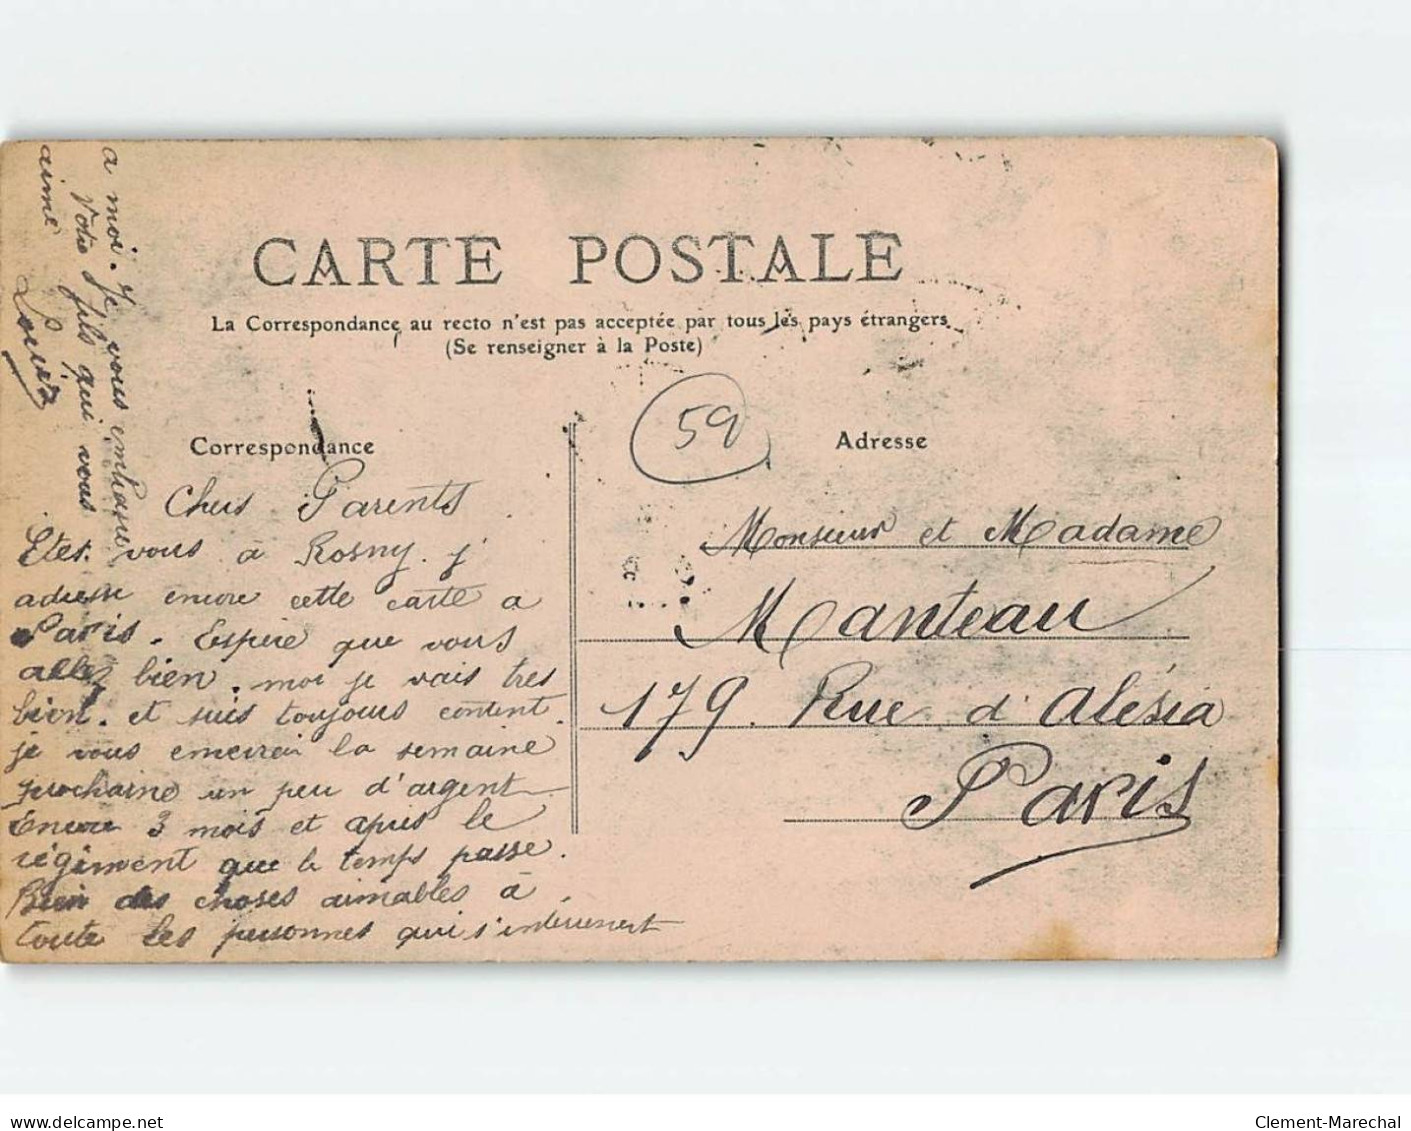 CARTE POSTALE
La Correspondance au recto n'est pas acceptée par tous les pays étrangers
(Se renseigner à la Poste)
59
Correspondance
Adresse
Chers Parents
Etes. vous à Rosny. j'
adresse encore cette carte a
Paris. Espère que vous
allez bien. moi je vais tres
bien. et suis toujours content.
je vous enverrai la semaine
prochaine un peu d'argent
Encore 3 mois et apres le
régiment que le temps passe.
Bien des choses aimables à
toute les personnes qui s'intéressent
a moi. Je vous embrasse
Votre fils qui vous
aime
Louis
Monsieur et Madame
Manteau
179. Rue d'Alésia
Paris
www.delcampe.net
Clement-Marechal